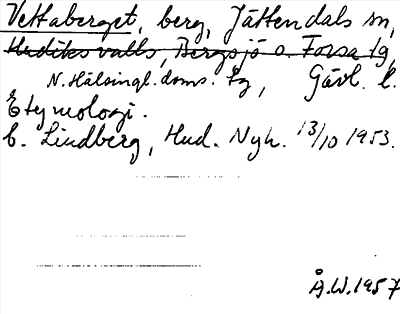 Vettaberget, berg, Jättendals sn,
Hudiksvalls, Bergsjö o. Forsa tg,
N. Hälsingl. doms. tg, Gävl. l.
Etymologi.
C. Lindberg, Hud. Nyh. 13/10 1953.
Å.W. 1957